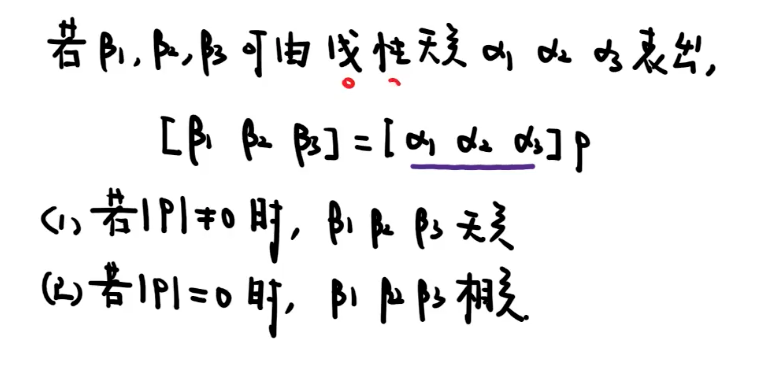 若β₁,β₂,β₃可由线性无关α₁ α₂ α₃表出,
[β₁ β₂ β₃]=[α₁ α₂ α₃]P
(1) 若|P|≠0时, β₁ β₂ β₃无关
(2) 若|P|=0时, β₁ β₂ β₃相关.